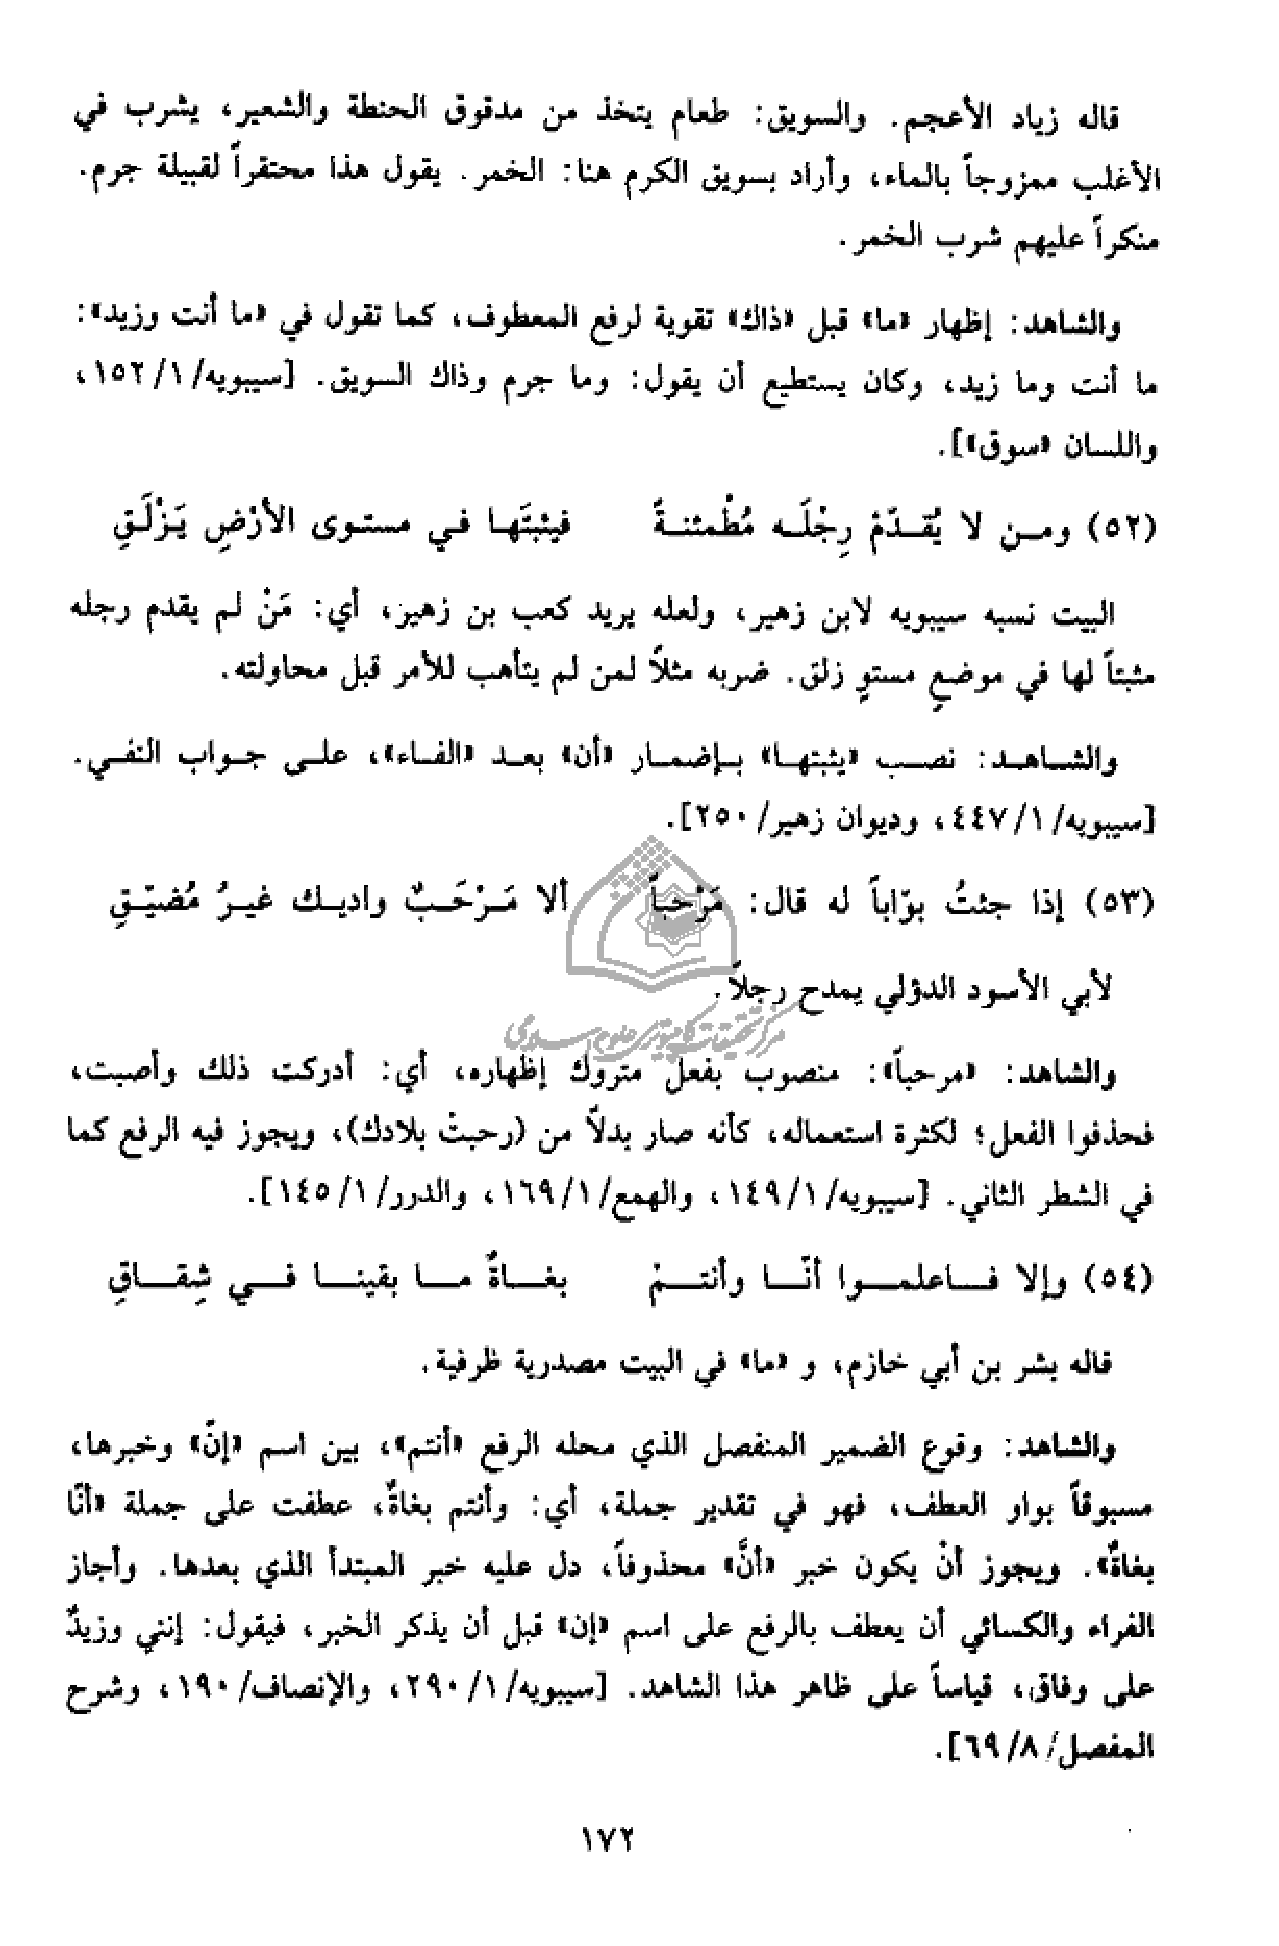 قاله زياد الأعجم. والسويق: طعام يتخذ من مدقوق الحنطة والشعير، يشرب في
الأغلب ممزوجاً بالماء، وأراد بسويق الكرم هنا: الخمر. يقول هذا محتقراً لقبيلة جرم.
منكراً عليهم شرب الخمر.
والشاهد: إظهار «ما» قبل «ذاك» تقوية لرفع المعطوف، كما تقول في «ما أنت وزيد»:
ما أنت وما زيد، وكان يستطيع أن يقول: وما جرم وذاك السويق. [سيبويه/ ١/ ١٥٢،
واللسان «سوق»].
(٥٢) ومن لا يُقدّمْ رِجْلَه مُطْمئنةً فيثبتَها في مستوى الأرْضِ يَزْلَقِ
البيت نسبه سيبويه لابن زهير، ولعله يريد كعب بن زهيز، أي: مَنْ لم يقدم رجله
مثبتاً لها في موضعٍ مستوٍ زلق. ضربه مثلاً لمن لم يتأهب للأمر قبل محاولته.
والشاهد: نصب «يثبتها» بإضمار «أن» بعد «الفاء»، على جواب النفي.
[سيبويه/ ١/ ٤٤٧، وديوان زهير/ ٢٥٠].
(٥٣) إذا جئتُ بوّاباً له قال: مَرْحباً ألا مَرْحَبٌ واديك غيرُ مُضيّقِ
لأبي الأسود الدؤلي يمدح رجلاً.
مركز تحقيقات كامپيوتری علوم اسلامی
والشاهد: «مرحباً»: منصوب بفعل متروك إظهاره، أي: أدركت ذلك وأصبت،
فحذفوا الفعل؛ لكثرة استعماله، كأنه صار بدلاً من (رحبتْ بلادك)، ويجوز فيه الرفع كما
في الشطر الثاني. [سيبويه/ ١/ ١٤٩، والهمع/ ١/ ١٦٩، والدرر/ ١/ ١٤٥].
(٥٤) وإلا فاعلموا أنّا وأنتمْ بغاةٌ ما بقينا في شِقاقِ
قاله بشر بن أبي خازم، و «ما» في البيت مصدرية ظرفية.
والشاهد: وقوع الضمير المنفصل الذي محله الرفع «أنتم»، بين اسم «إنّ» وخبرها،
مسبوقاً بواو العطف، فهو في تقدير جملة، أي: وأنتم بغاةٌ، عطفت على جملة «أنّا
بغاةٌ». ويجوز أنْ يكون خبر «أنَّ» محذوفاً، دل عليه خبر المبتدأ الذي بعدها. وأجاز
الفراء والكسائي أن يعطف بالرفع على اسم «إن» قبل أن يذكر الخبر، فيقول: إنني وزيدٌ
على وفاق، قياساً على ظاهر هذا الشاهد. [سيبويه/ ١/ ٢٩٠، والإنصاف/ ١٩٠، وشرح
المفصل/ ٨/ ٦٩].
١٧٢